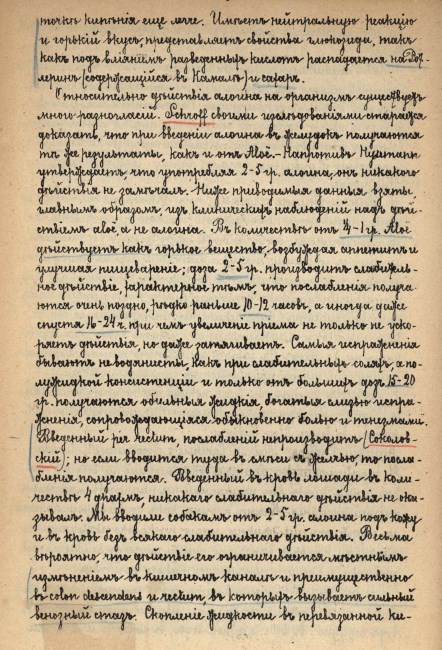 точкѣ кипѣнія еще легче. Имѣетъ нейтральную реакцію
и горькій вкусъ, представляетъ свойства глюкозида, такъ
какъ подъ вліяніемъ разведенныхъ кислотъ распадается на Рот-
леринъ (содержащійся въ Камалѣ) и сахаръ.
Относительно дѣйствія алоина на организмъ существуетъ
много разногласій. Schroff своими изслѣдованіями старался
доказать, что при введеніи алоина въ желудокъ получаются
тѣ же результаты, какъ и отъ Aloë. — Напротивъ
утверждаетъ, что употребляя 2-5 гр. алоина, онъ никакого
дѣйствія не замѣчалъ. Ниже приводимыя данныя взяты,
главнымъ образомъ, изъ клиническихъ наблюденій надъ дѣй-
ствіемъ aloë, а не алоина. Въ количествѣ отъ гр. Aloë
дѣйствуетъ какъ горькое вещество, возбуждая аппетитъ и
улучшая пищевареніе; доза 2-5 гр. производитъ слабитель-
ное дѣйствіе, характерное тѣмъ, что послабленія получа-
ются очень поздно, рѣдко раньше 10-12 часовъ, а иногда даже
спустя 16-24 ч. при чемъ увеличеніе пріема не только не уско-
ряетъ дѣйствія, но даже затягиваетъ. Самыя испражненія
бываютъ не водянисты, какъ при слабительныхъ соляхъ, а по-
лужидкой консистенціи и только отъ большихъ дозъ 15-20
гр. получаются обильныя жидкія, богатыя слизью испра-
жненія, сопровождающіяся обыкновенно болью и тенезмами.
Введенный per rectum, послабленій непроизводитъ (Соколов-
скій); но если вводится туда въ смѣси съ желчью, то посла-
бленія получаются. Введенный въ кровь лошади въ коли-
чествѣ 4 драхмъ, никакого слабительнаго дѣйствія не ока-
зывалъ. Мы вводили собакамъ отъ 2-5 гр. алоина подъ кожу
и въ кровь безъ всякаго слабительнаго дѣйствія. Весьма
вѣроятно, что дѣйствіе его ограничивается мѣстнымъ
измѣненіемъ въ кишечномъ каналѣ и преимущественно
въ colon descendens и rectum, въ которыхъ вызываетъ сильный
венозный стазъ. Скопленіе жидкости въ перевязанной ки-